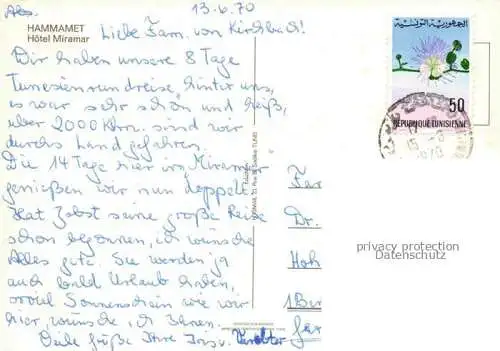 13.6.70
HAMMAMET
Hôtel Miramar
Liebe Fam. von Kirchbach!
Wir haben unsere 8 Tage
Tunesienrundreise hinter uns,
es war sehr schön und heiß,
über 2000 Klm. sind wir
durchs Land gefahren.
Die 14 Tage hier im Miramar
genießen wir nun doppelt.
Hat Jobst seine große Reise
schon begonnen, ich wünsche
Alles gute. Sie werden ja
auch bald Urlaub haben,
soviel Sonnenschein wie wir
hier, wünsche ich Ihnen.
Viele Grüße Ihre
الجمهورية التونسية
50
REPUBLIQUE TUNISIENNE
1970
Fam
Dr.
Hoh
privacy protection
Datenschutz